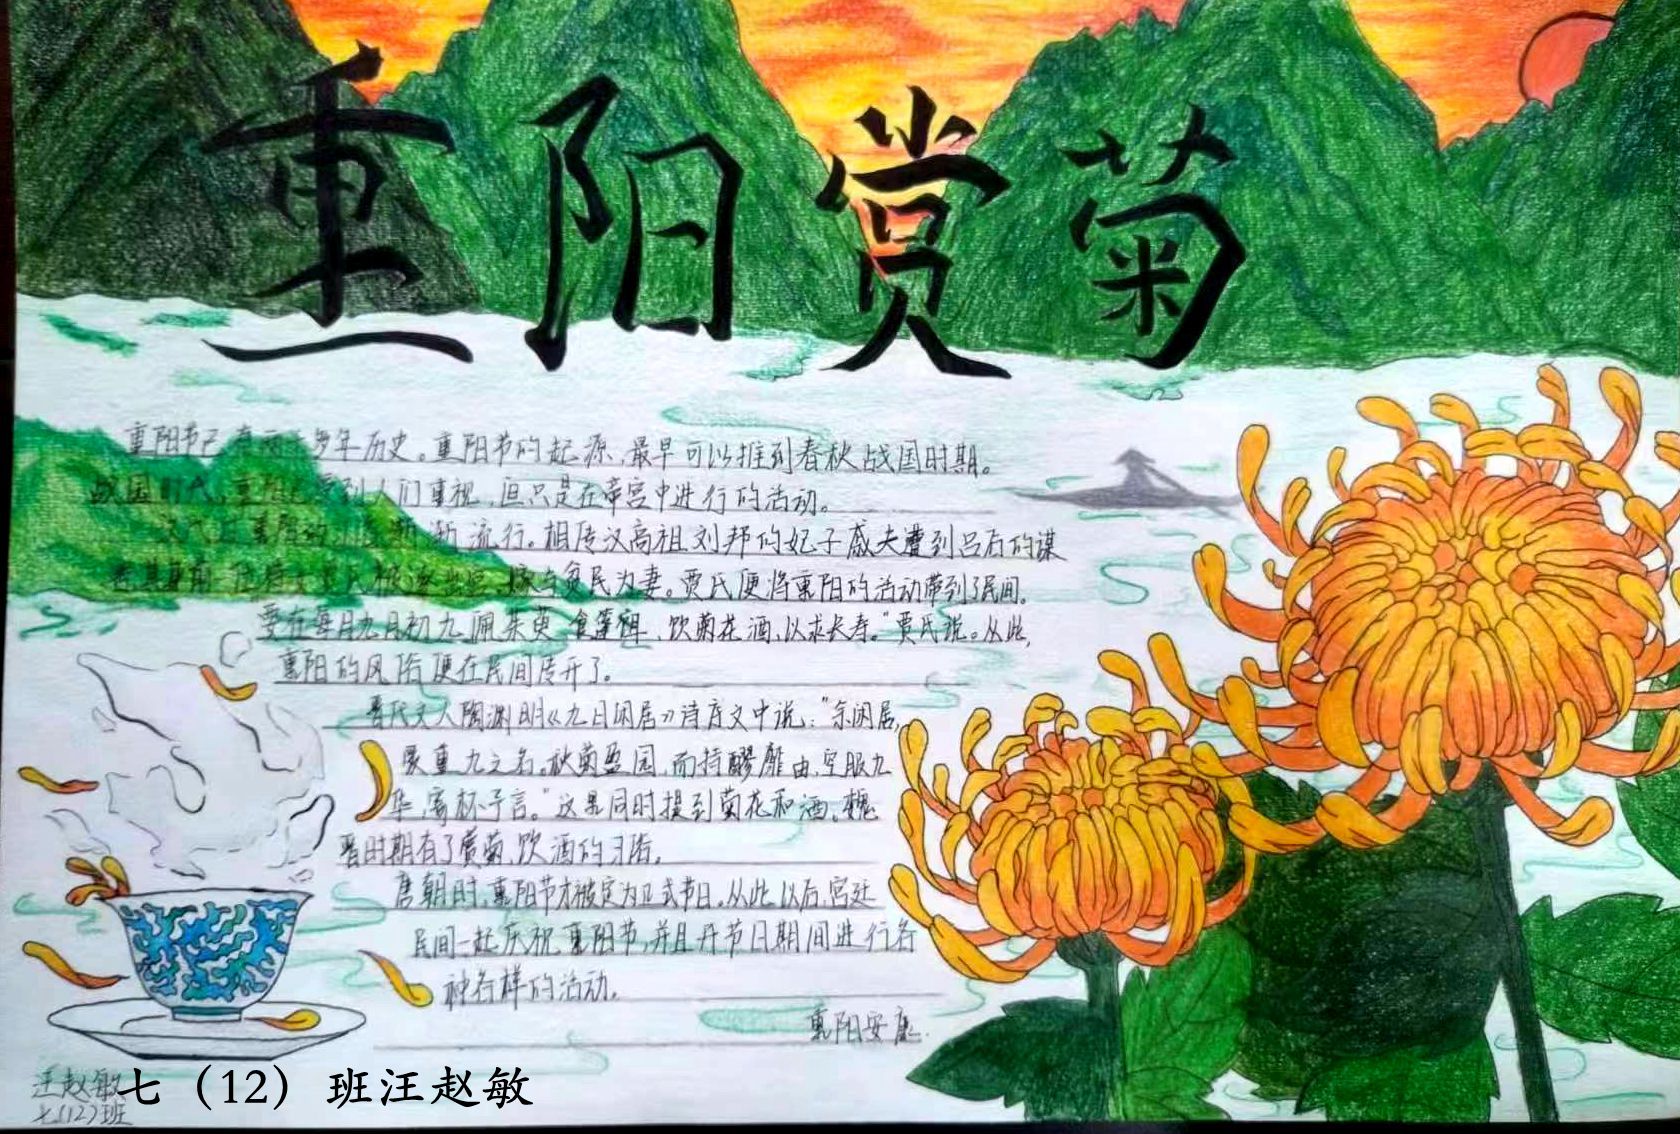 重阳赏菊
重阳节已有两千多年历史。重阳节的起源,最早可以推到春秋战国时期。
战国时代,重阳已受到人们重视,但只是在帝宫中进行的活动。
重阳的 渐渐流行。相传汉高祖刘邦的妃子戚夫遭到吕后的谋
贫民为妻。贾氏便将重阳的活动带到了民间。
要在每月九月初九,佩茱萸,食篷饵,饮菊花酒,以求长寿。"贾氏说。从此,
重阳的风俗便在民间传开了。
晋代文人陶渊明《九日闲居》诗序文中说:"余闲居,
爱重九之名。秋菊盈园,而持醪靡由,空服九
华,寄杯于言。"这里同时提到菊花和酒。魏
晋时期有了赏菊、饮酒的习俗。
唐朝时,重阳节才被定为正式节日。从此以后,宫廷
民间一起庆祝重阳节,并且在节日期间进行各
种各样的活动。
重阳安康.
汪赵敏
七(12)班
七(12)班汪赵敏